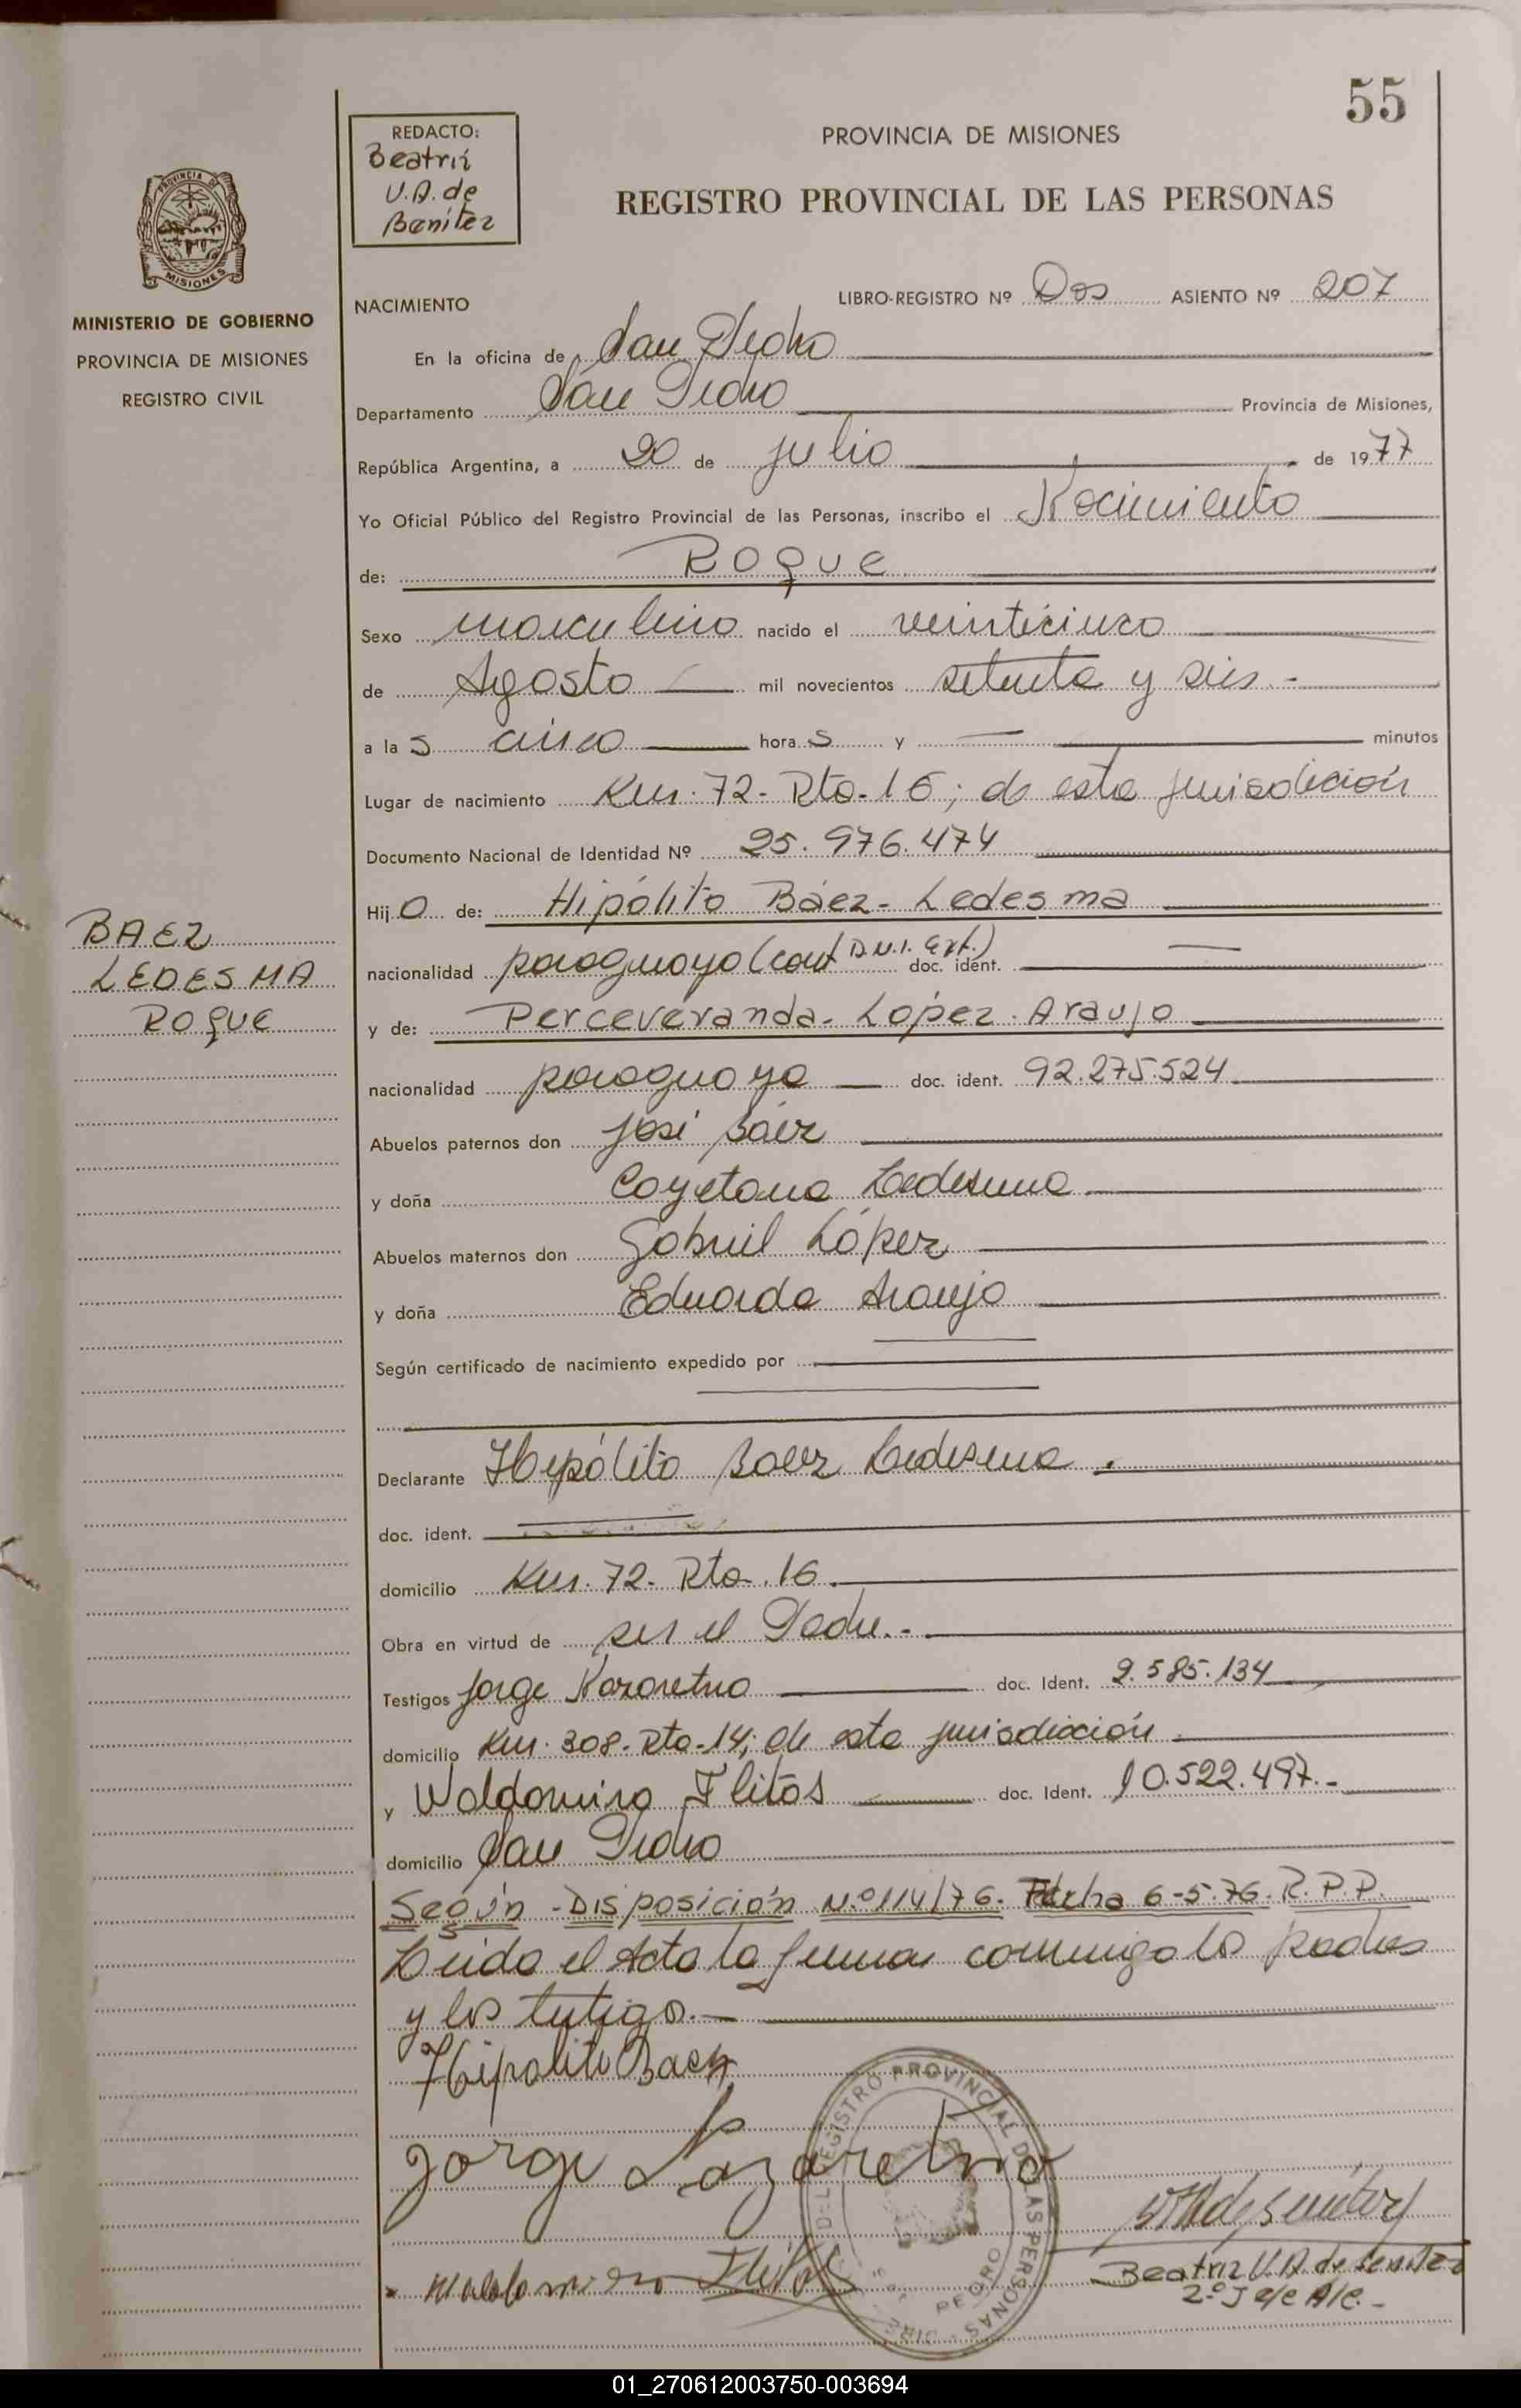 55
REDACTO:
Beatriz
V.A. de
Benítez
PROVINCIA DE MISIONES
REGISTRO PROVINCIAL DE LAS PERSONAS
PROVINCIA DE
MISIONES
MINISTERIO DE GOBIERNO
PROVINCIA DE MISIONES
REGISTRO CIVIL
NACIMIENTO
LIBRO-REGISTRO Nº Dos ASIENTO Nº 207
En la oficina de San Pedro
Departamento San Pedro Provincia de Misiones,
República Argentina, a 20 de julio de 1977
Yo Oficial Público del Registro Provincial de las Personas, inscribo el Nacimiento
de: Roque
Sexo masculino nacido el veinticinco
de Agosto mil novecientos setenta y seis.-
a las cinco horas y — minutos
Lugar de nacimiento Km. 72- Rta. 16; de esta jurisdicción
Documento Nacional de Identidad Nº 25.976.474
Hijo de: Hipólito Báez- Ledesma
nacionalidad paraguayo (cont D.N.I. Ext.) doc. ident. —
y de: Perceveranda- López- Araujo
nacionalidad paraguaya doc. ident. 92.275.524
Abuelos paternos don José Báez
y doña Cayetana Ledesma
Abuelos maternos don Gabriel López
y doña Eduarda Araujo
Según certificado de nacimiento expedido por
Declarante Hipólito Baez Ledesma.
doc. ident.
domicilio Km. 72- Rta. 16
Obra en virtud de ser el Padre.-
Testigos Jorge Nazaretno doc. Ident. 9.585.134
domicilio Km. 308- Rta-14; de esta jurisdicción
y Waldomiro Flitos doc. Ident. 10.522.497.-
domicilio San Pedro
Según -Disposición N.º 114/76. Fecha 6-5-76. R.P.P.
Leida el Acta la firman conmigo los padres
y los testigos.-
BAEZ
LEDESMA
Roque
Hipolito Baez
Jorge
DEL REGISTRO PROVINCIAL DE LAS PERSONAS
PEDRO
Beatriz V.A. de Benitez
2º Jefe A/c.-
01_270612003750-003694